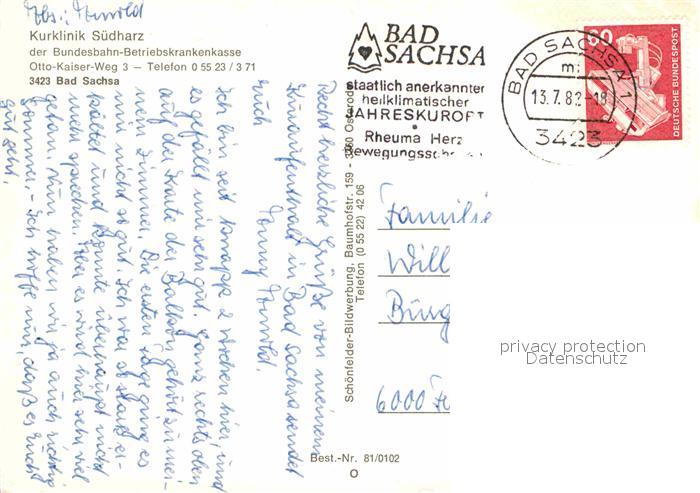 Abs.: Arnold
Kurklinik Südharz
der Bundesbahn-Betriebskrankenkasse
Otto-Kaiser-Weg 3 — Telefon 0 55 23 / 3 71
3423 Bad Sachsa
Recht herzliche Grüße von meinem
Kuraufenthalt in Bad Sachsa sendet
Euch
Arnold.
Ich bin seit knapp 2 Wochen hier, und
es gefällt mir sehr gut. Ganz rechts oben
auf der Karte der Balkon gehört zu mei-
nem Zimmer. Die ersten Tage ging es
mir nicht so gut. Ich war so stark er-
kältet und konnte überhaupt nicht
mehr sprechen. Aber es wird hier sehr viel
getan. Nun haben wir ja auch richtig
Sommer. - Ich hoffe nur, daß es Euch
gut geht.
Schönfelder-Bildwerbung, Baumhofstr. 159 - 3360 Osterode
Telefon (0 55 22) 42 06
Best.-Nr. 81/0102
BAD
SACHSA
staatlich anerkannter
heilklimatischer
JAHRESKURORT
Rheuma Herz
BAD SACHSA 1
13.7.82-18
3423
60
DEUTSCHE BUNDESPOST
Familie
Will
Burg
6000
privacy protection
Datenschutz